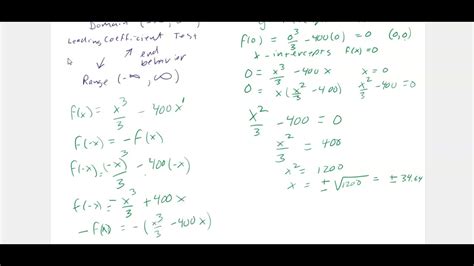 Domain
Leading Coefficient Test
end
behavior
Range (-∞, ∞)
f(x) = x³/3 - 400x¹
f(-x) = -f(x)
f(-x) = (-x)³/3 - 400(-x)
f(-x) = -x³/3 + 400x
-f(x) = -(x³/3 - 400x)
f(0) = 0³/3 - 400(0) = 0 (0,0)
x-intercepts f(x)=0
0 = x³/3 - 400x x = 0
0 = x(x²/3 - 400) x²/3 - 400 = 0
x²/3 - 400 = 0
x²/3 = 400
x² = 1200
x = ±√1200 = ± 34.64